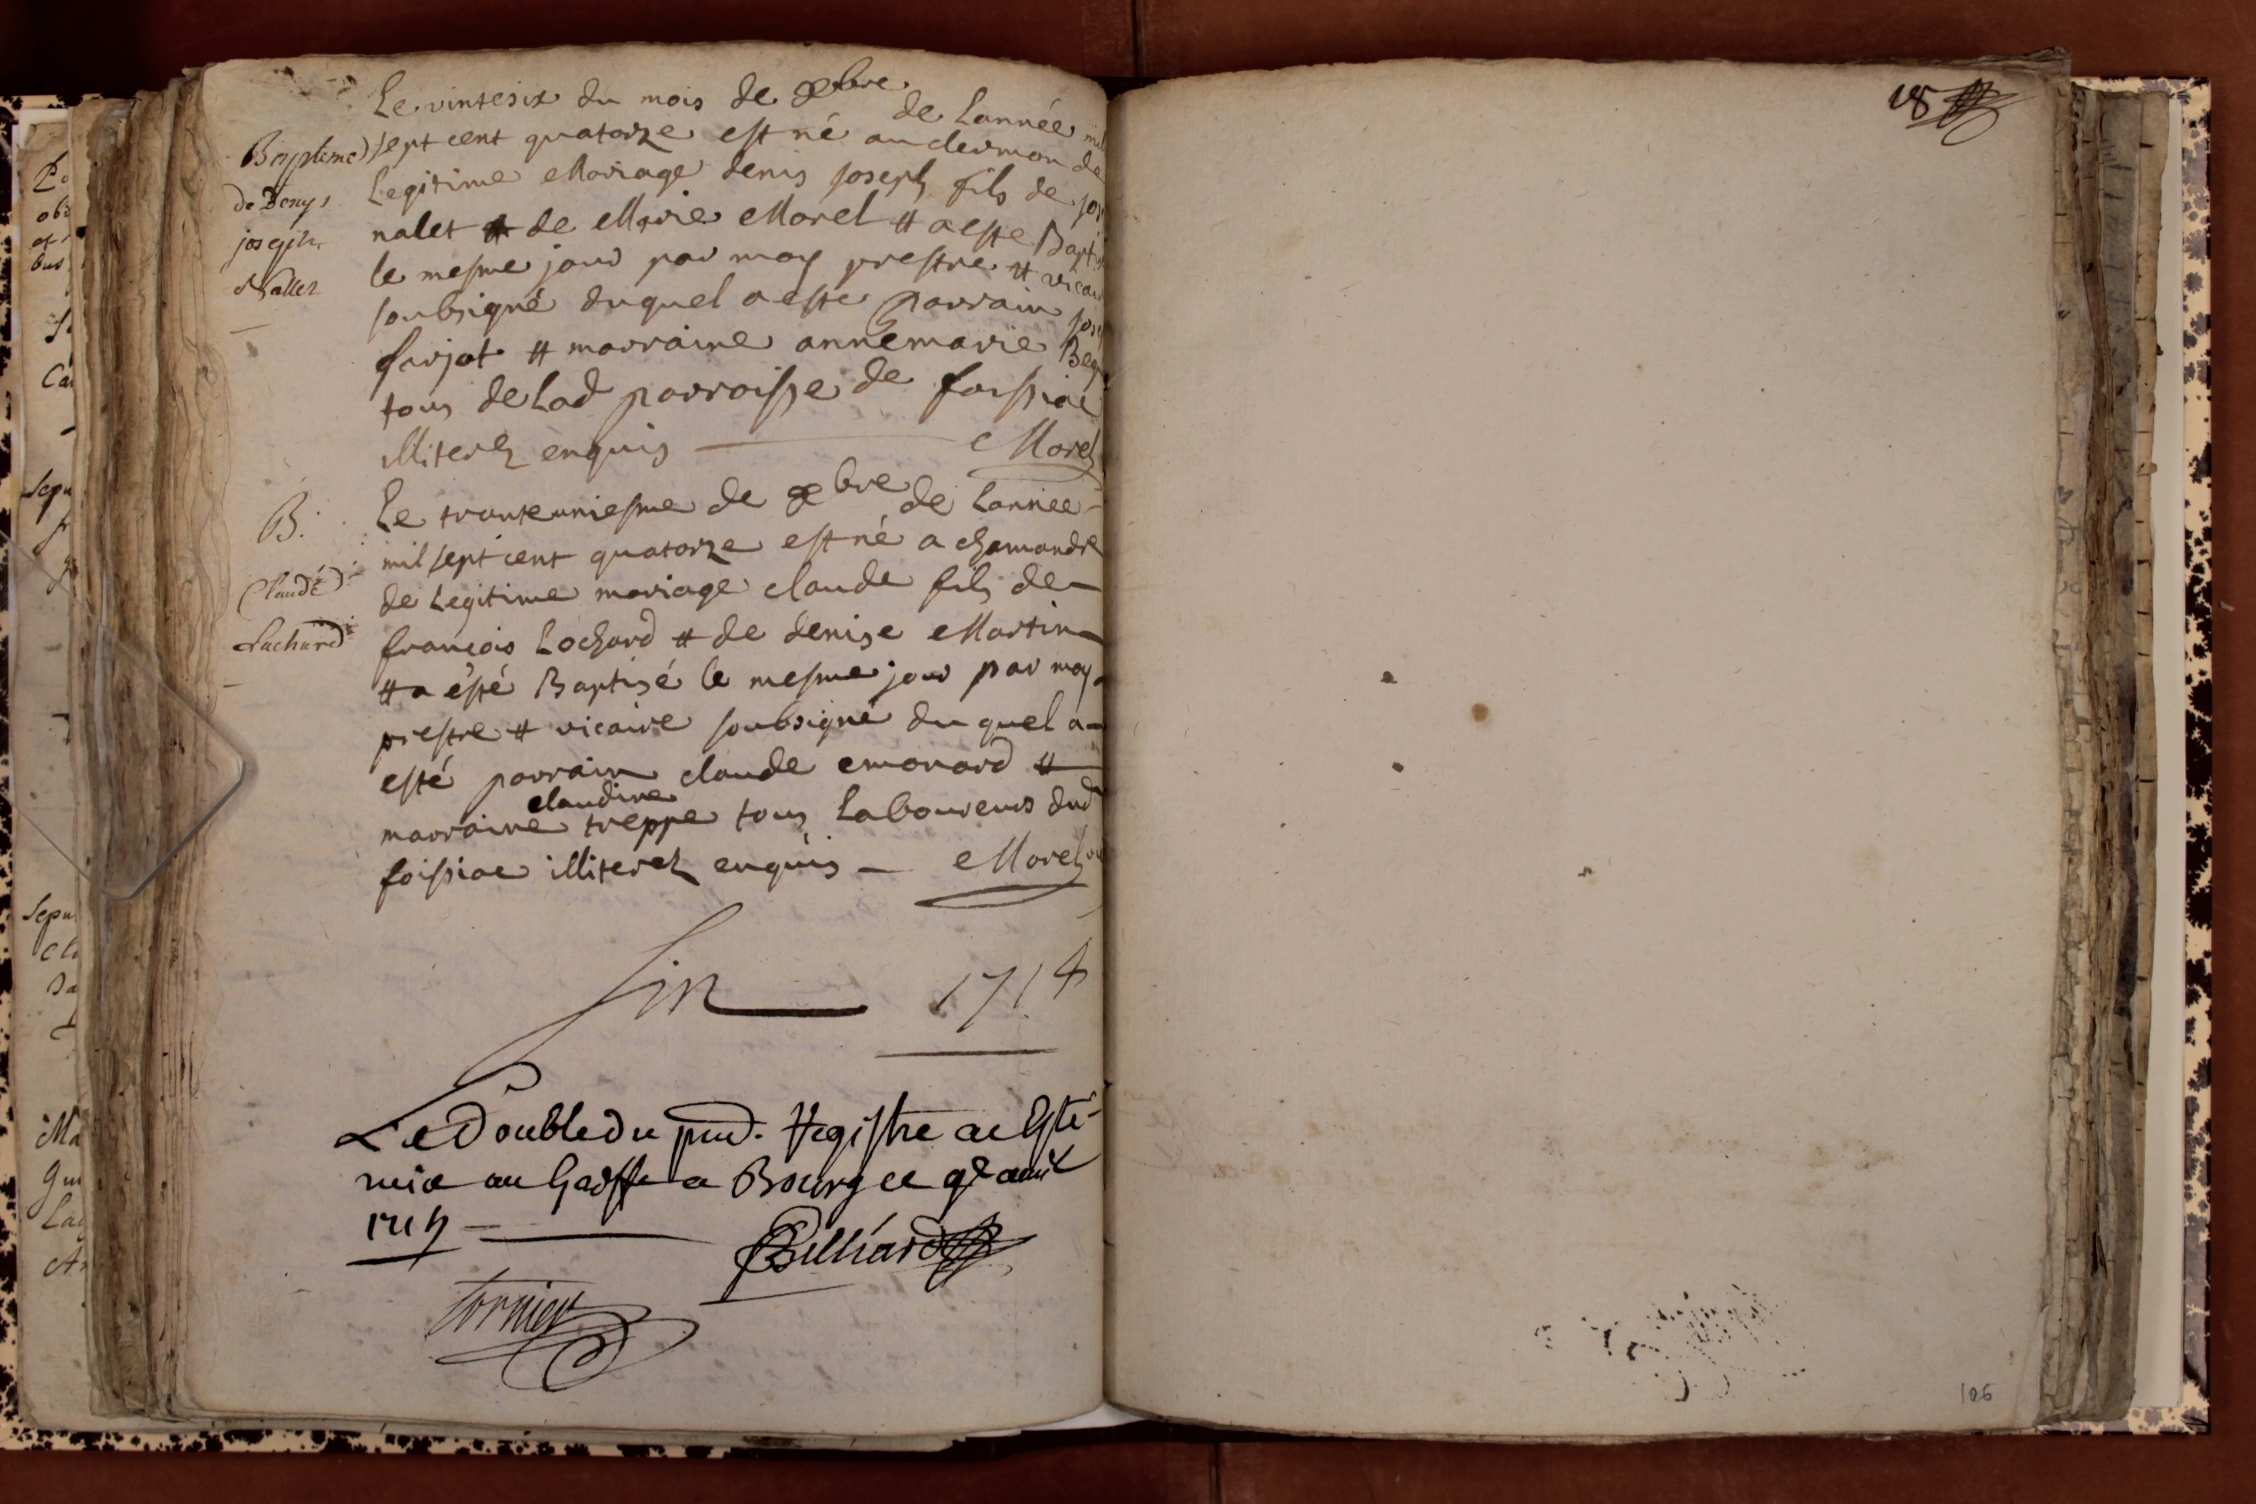 Le vintesix du mois de xbre de Lannée mil
sept cent quatorze est né au dermon de
Legitime Mariage denis joseph fils de
nalet & de Marie Morel & a este Bapti
le mesme jour par moy prestre & vicai
soubsigné duquel a este parrain jos
firjat & marraine annemarie
tous de Lad parroisse de foissiac
illiterez enquis Morel
Baptême
de Denys
joseph
Nallet
Le tranteuniesme de xbre de Lannee
mil sept cent quatorze est né a chamandre
de Legitime mariage claude fils de
françois Lochard & de denise Martin
& a esté Baptisé le mesme jour par moy
prestre & vicaire soubsigné du quel a
esté parrain claude emonard &
claudine
marraine treppe tous Laboureurs dud
foissiac illiterez enquis Morel
B.
Claude
Lachard
fin 1714
Le Double du pnd. Registre a Esté
mis au Greffe a Bourg ce 9e avril
1715
Billiard
Tornier
18
106